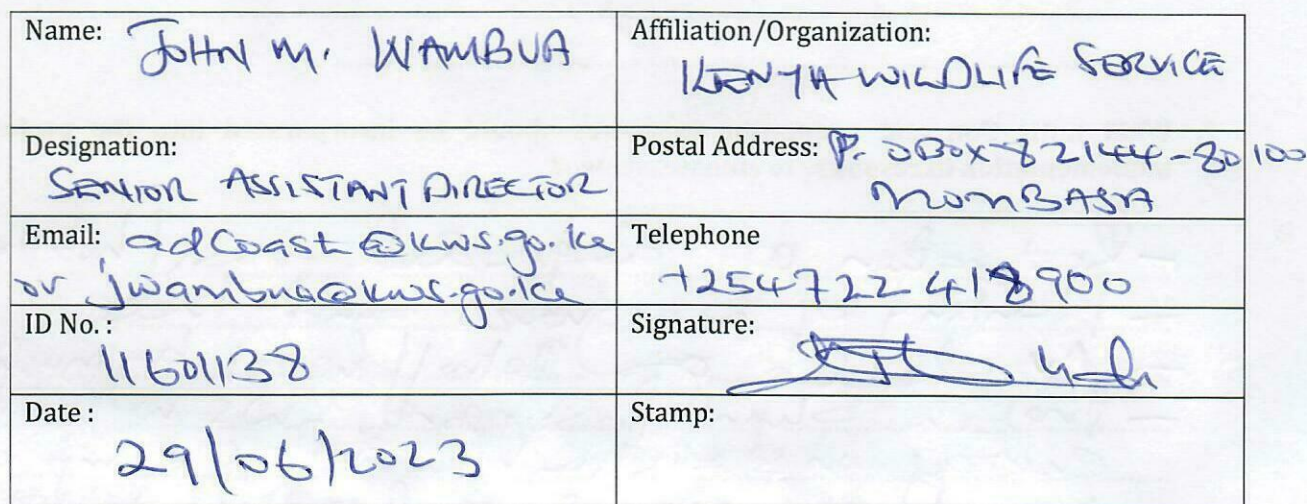 Name: JOHN M. WAMBUA
Affiliation/Organization:
KENYA WILDLIFE SERVICE
Designation:
SENIOR ASSISTANT DIRECTOR
Postal Address: P. O BOX 82144-80100
MOMBASA
Email: adcoast@kws.go.ke
or jwambua@kws.go.ke
Telephone
+254722 418900
ID No. :
11601138
Signature:
Date :
29/06/2023
Stamp: